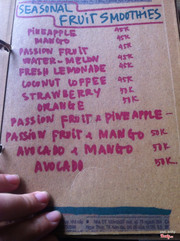 SEASONAL
FRUIT SMOOTHIES
PINEAPPLE 45K
MANGO 45K
PASSION FRUIT 45K
WATER-MELON 45K
FRESH LEMONADE 45K
COCONUT COFFEE 45K
STRAWBERRY
ORANGE
PASSION FRUIT & PINEAPPLE -
PASSION FRUIT & MANGO 50K
AVOCADO & MANGO 50K
AVOCADO 50K